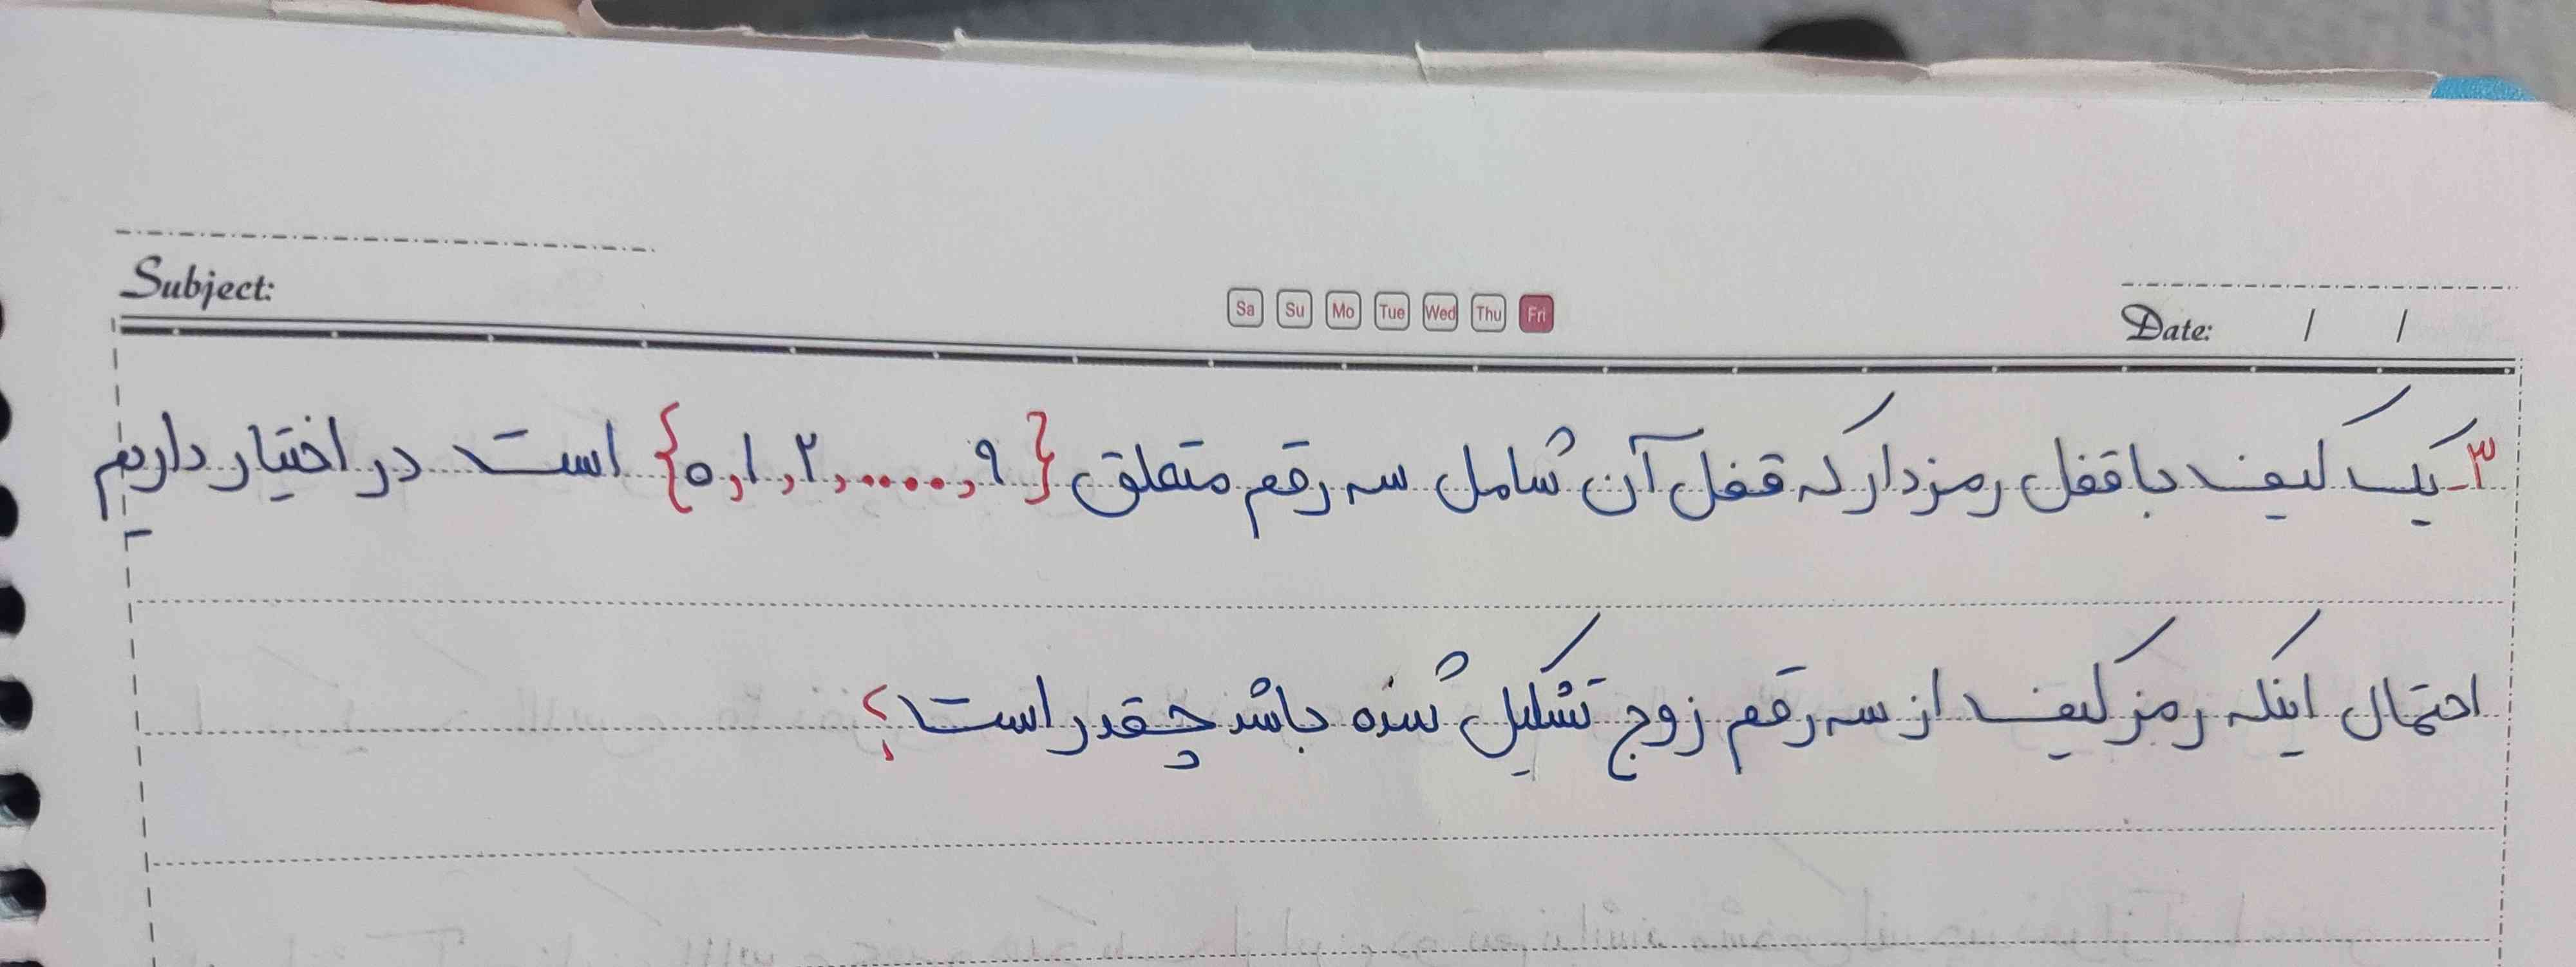 Subject:
Sa Su Mo Tue Wed Thu Fri
Date: / /
۳ـ یک کیف با قفل رمزدار که قفل آن شامل سه رقم متعلق {۰,۱,۲,.....,۹} است در اختیار داریم
احتمال اینکه رمز کیف از سه رقم زوج تشکیل شده باشد چقدر است؟